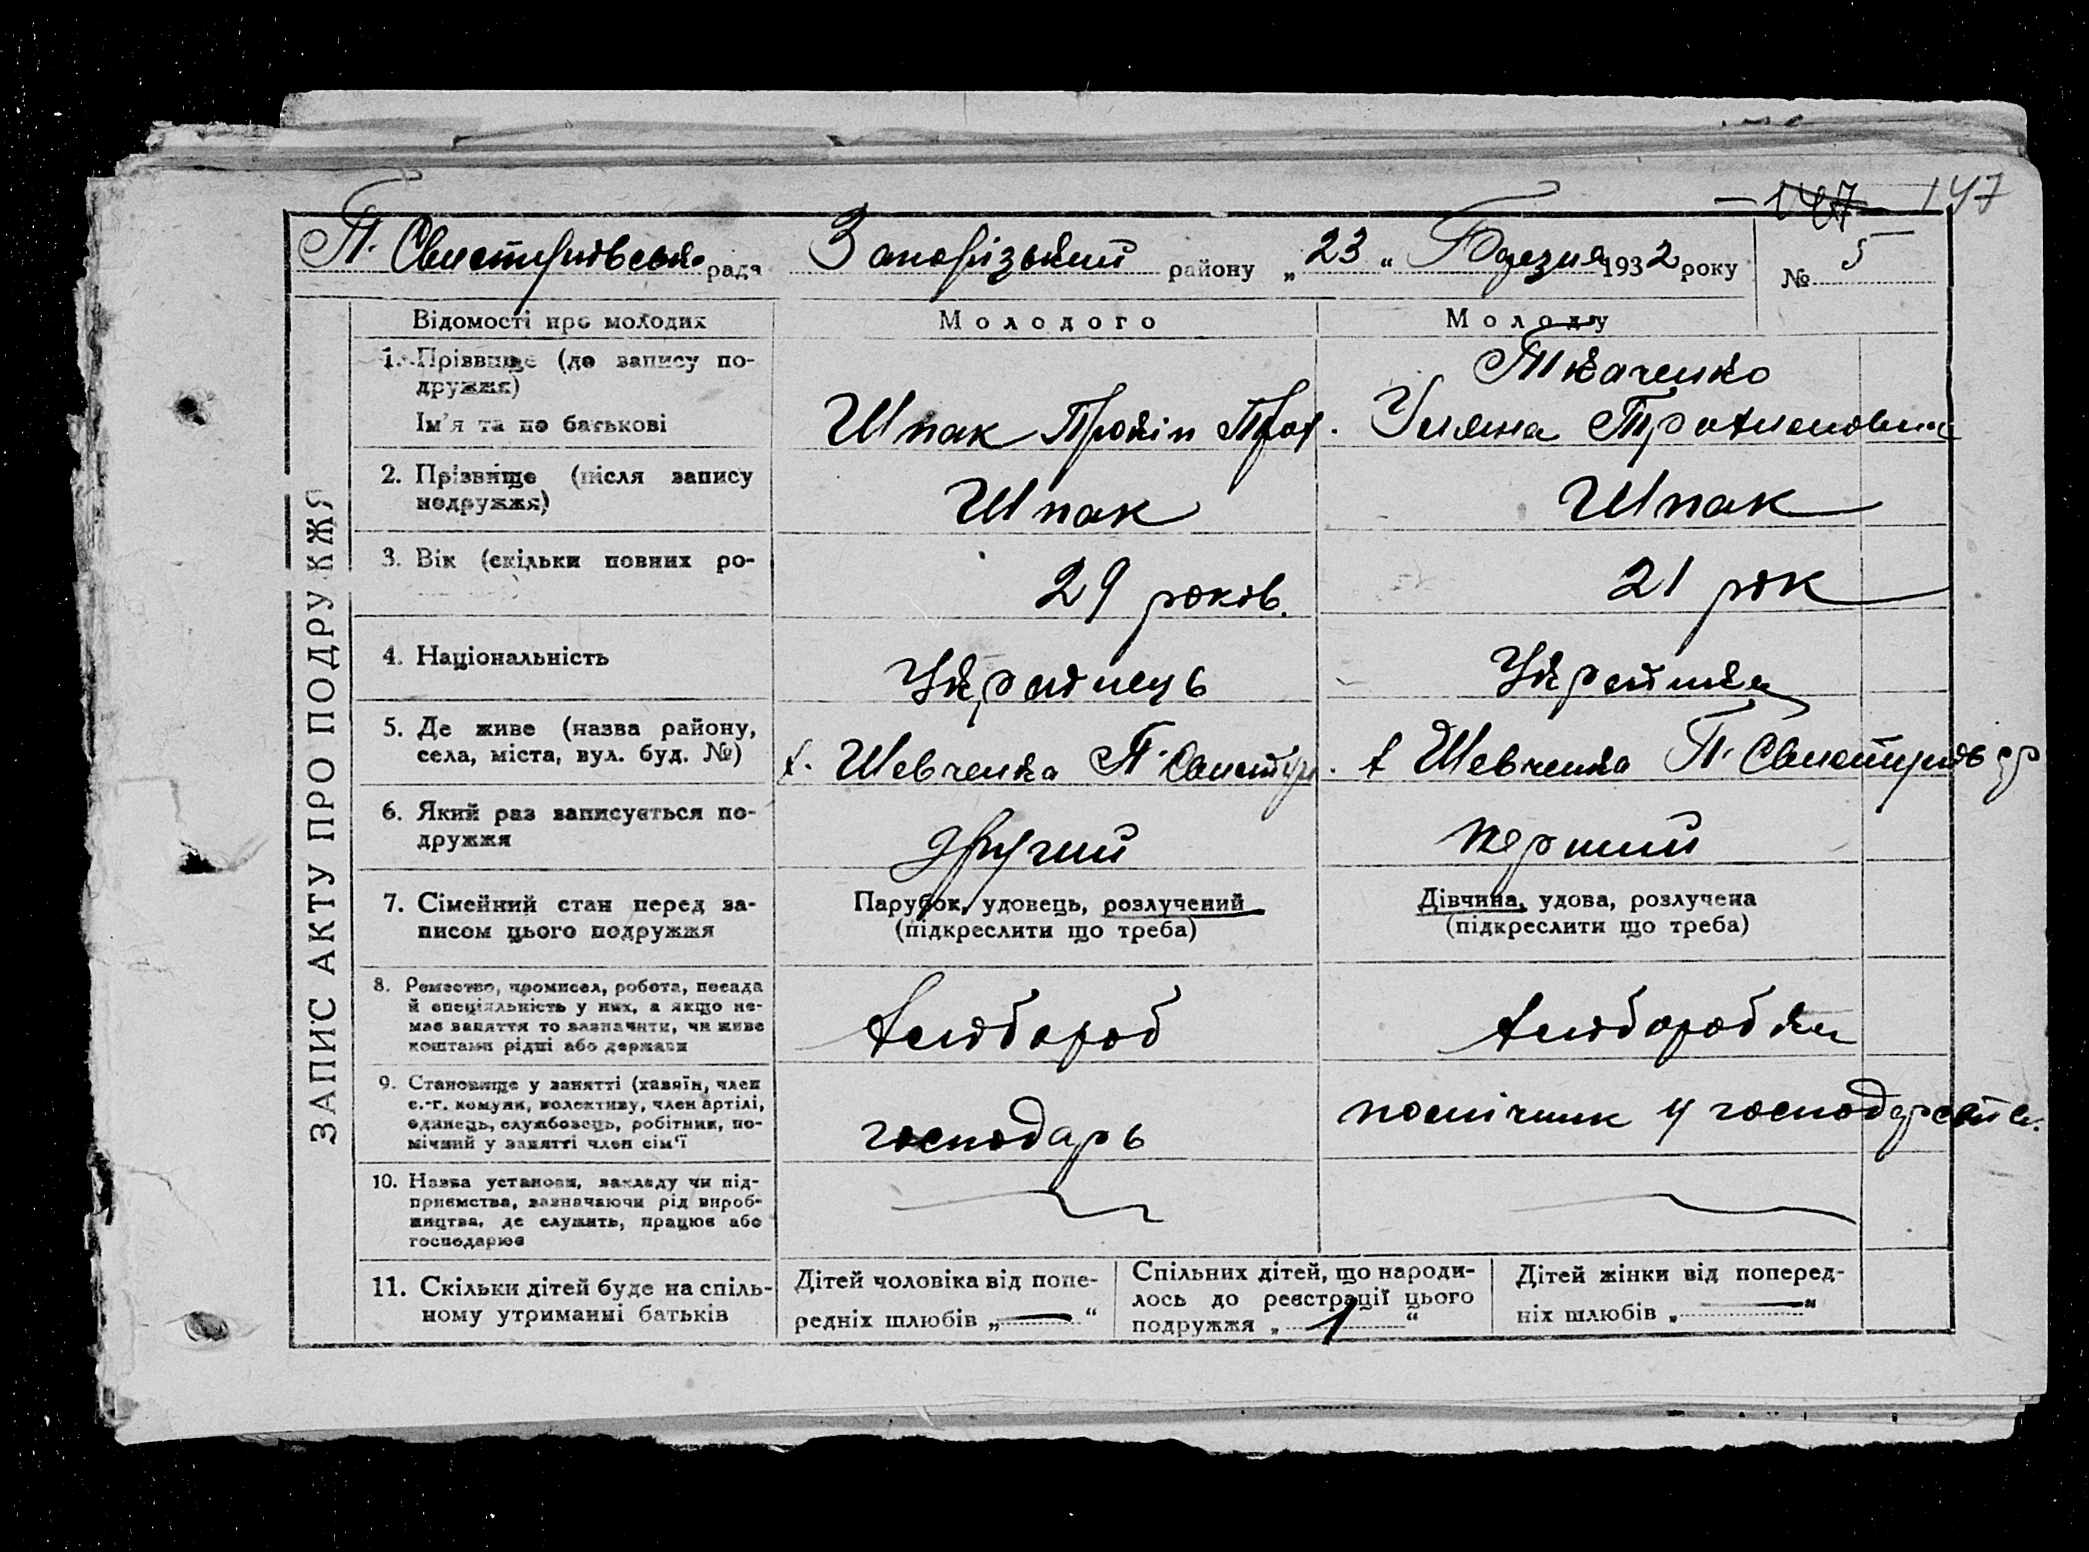 147 147
П. Свистунівська рада Запорізький району „ 23 “ Березня 1932 року № 5
ЗАПИС АКТУ ПРО ПОДРУЖЖЯ
Відомості про молодих Молодого Молоду
1. Прізвище (до запису по-
дружжя) Ткаченко
Ім'я та по батькові Шпак Прокіп Уляна
2. Прізвище (після запису
подружжя) Шпак Шпак
3. Вік (скільки повних ро-
29 років. 21 рік
4. Національність Українець Українка
5. Де живе (назва району,
села, міста, вул. буд. №) х. Шевченка П. Свистун. х Шевченка П. Свистунів
6. Який раз записується по-
дружжя другий перший
7. Сімейний стан перед за- Парубок, удовець, розлучений Дівчина, удова, розлучена
писом цього подружжя (підкреслити що треба) (підкреслити що треба)
8. Ремество, промисел, робота, посада
й спеціяльність у них, а якщо не-
має заняття то зазначити, чи живе
коштами рідні або держави хлібороб хліборобка
9. Становище у занятті (хазяїн, член
с.-г. комуни, колективу, член артілі,
одинець, службовець, робітник, по-
мічний у занятті член сім'ї господарь помічник у господарств.
10. Назва установи, закладу чи під-
приємства, зазначаючи рід вироб-
ництва, де служить, працює або
господарює
11. Скільки дітей буде на спіль-
ному утриманні батьків
Дітей чоловіка від попе-
редніх шлюбів „ — “
Спільних дітей, що народи-
лось до реєстрації цього
подружжя „ 1 “
Дітей жінки від поперед-
ніх шлюбів „ — “